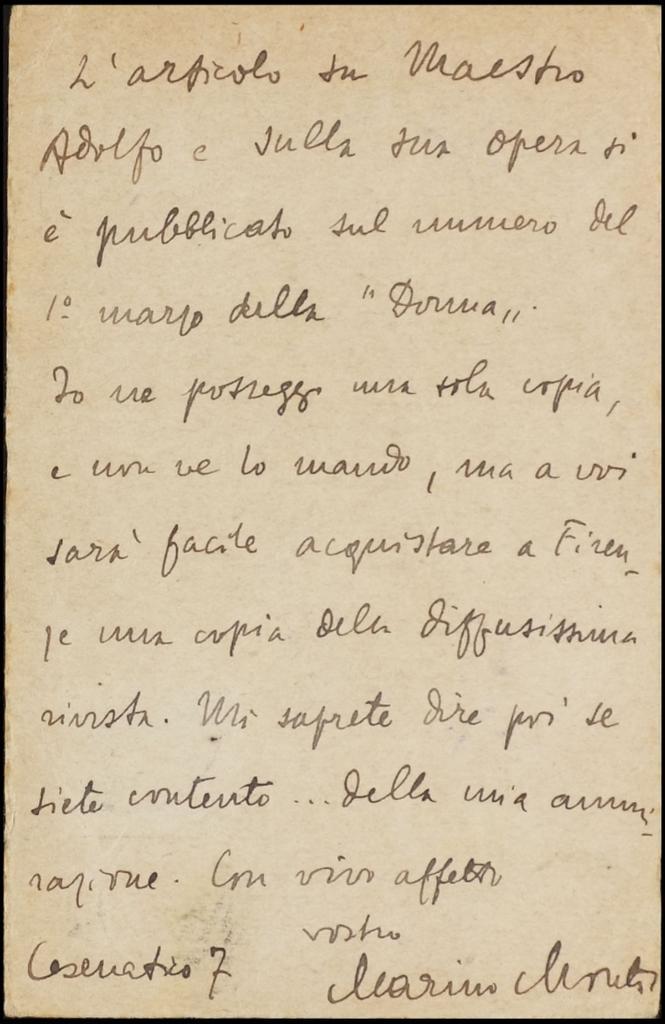 L'articolo su Maestro
Adolfo e sulla sua opera si
è pubblicato sul numero del
1º marzo della "Donna„.
Io ne posseggo una sola copia,
e non ve lo mando, ma a voi
sarà facile acquistare a Firen-
ze una copia della diffusissima
rivista. Mi saprete dire poi se
siete contento... della mia ammi-
razione. Con vivo affetto
vostro
Cesenatico 7
Marino Moretti